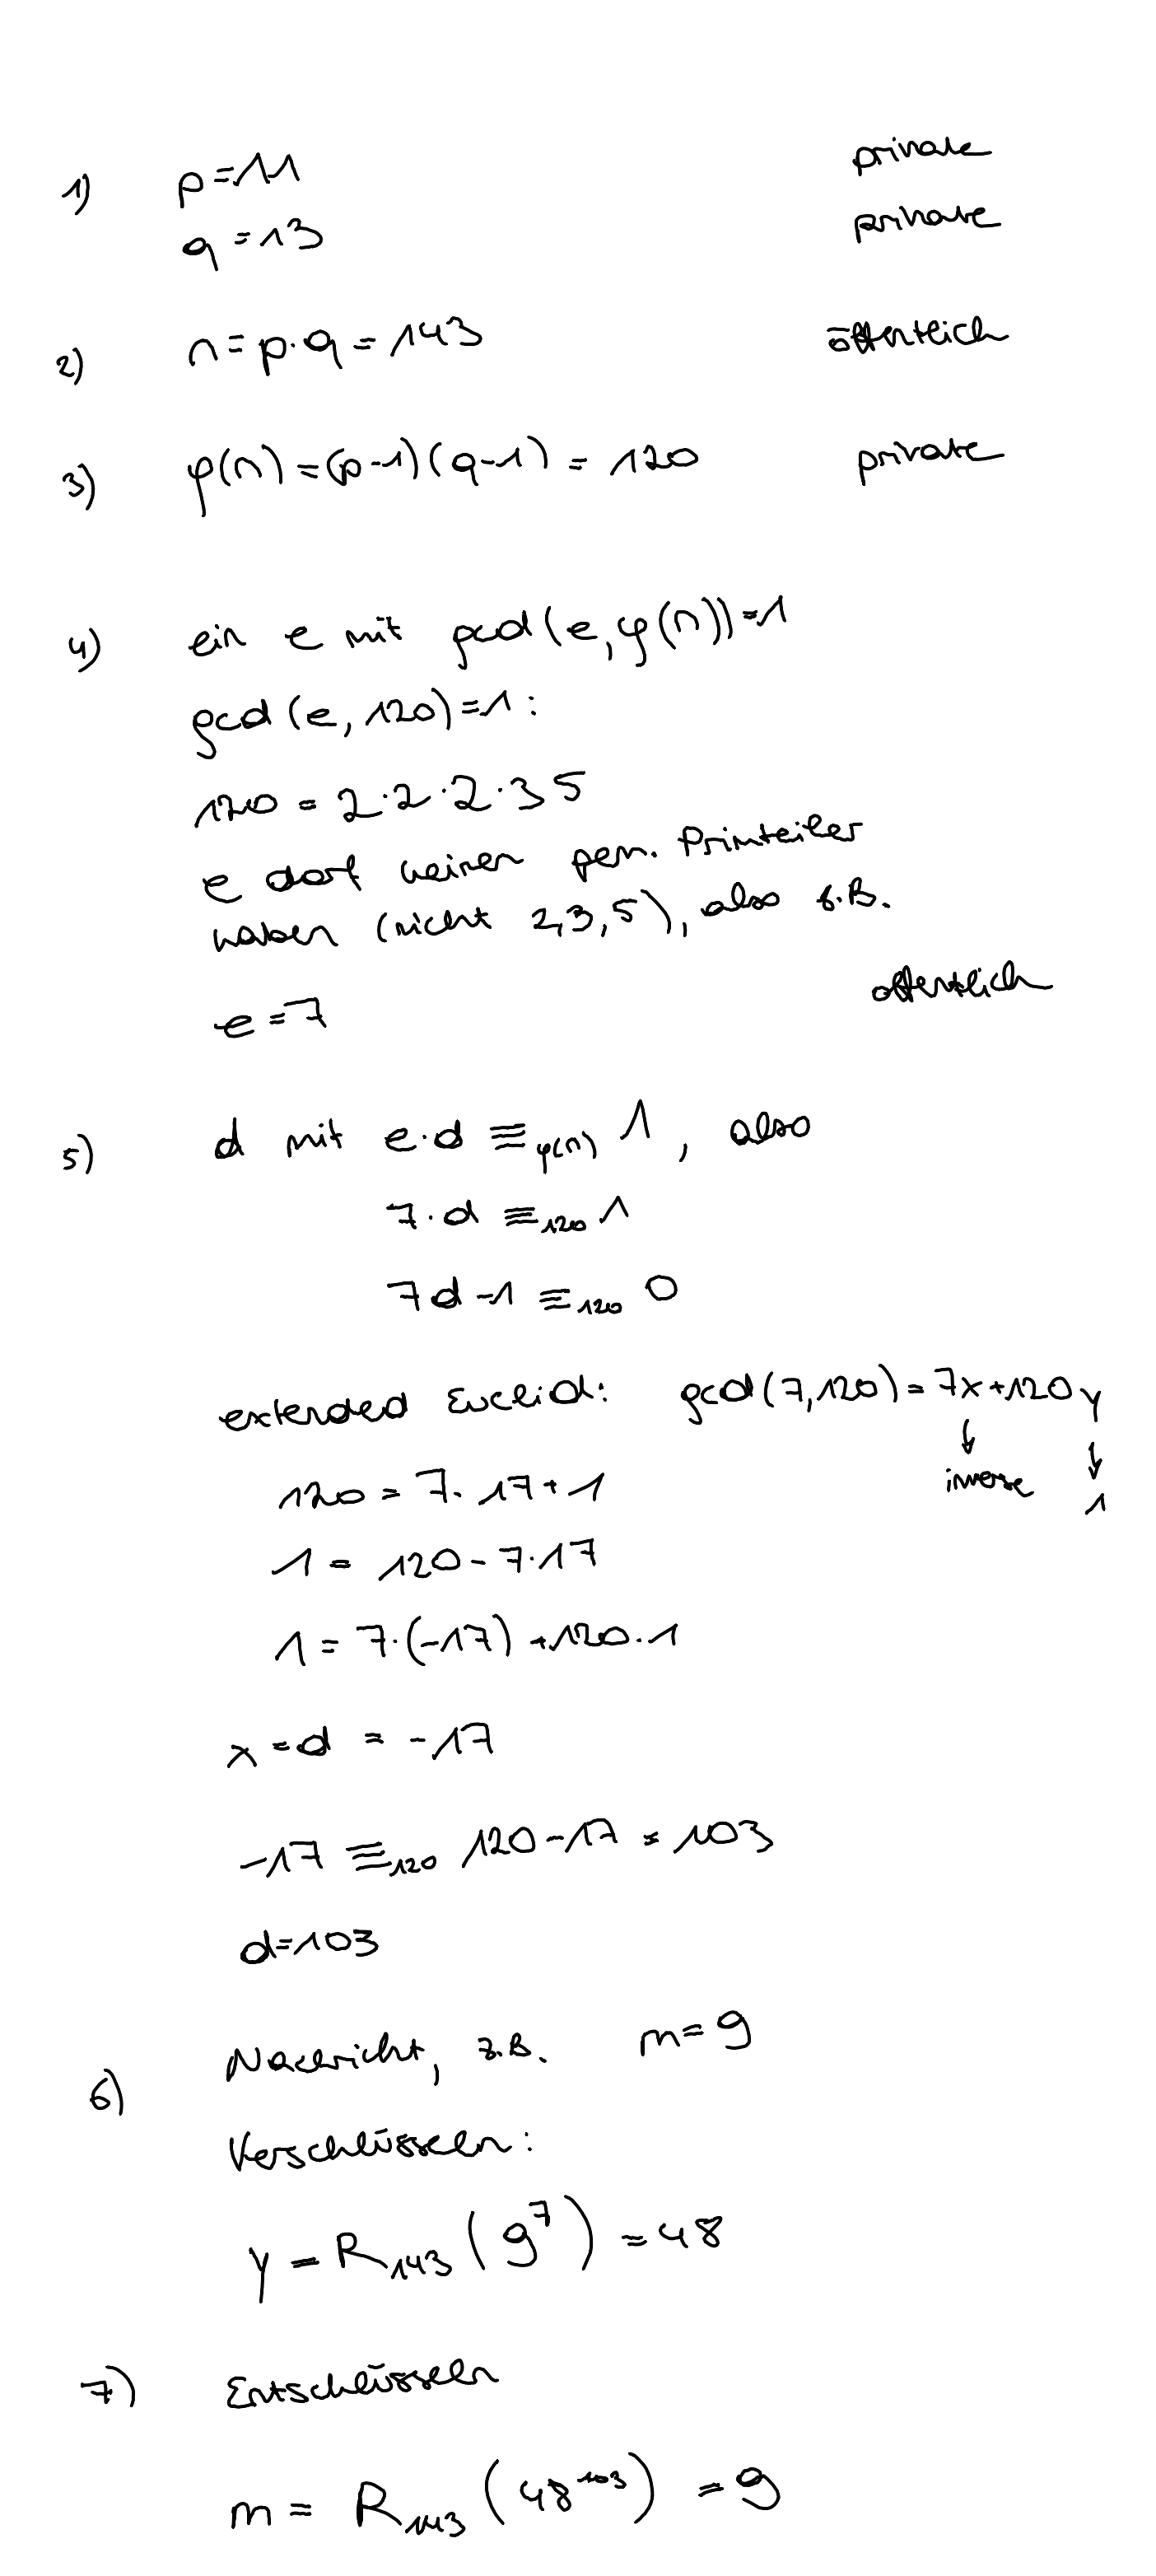 1) p=11 private
q=13 private
2) n=p·q=143 öffentlich
3) φ(n)=(p-1)(q-1)=120 private
4) ein e mit gcd(e,φ(n))=1
gcd(e,120)=1:
120=2·2·2·3 5
e darf keinen gem. Primteiler
haben (nicht 2,3,5), also z.B.
e=7 öffentlich
5) d mit e·d ≡φ(n) 1, also
7·d ≡120 1
7d-1 ≡120 0
extended Euclid: gcd(7,120)=7x+120y
↓ ↓
inverse 1
120=7·17+1
1=120-7·17
1=7·(-17)+120·1
x=d=-17
-17 ≡120 120-17=103
d=103
6) Nachricht, z.B. m=9
Verschlüsseln:
y=R143(9^7)=48
7) Entschlüsseln
m=R143(48^103)=9